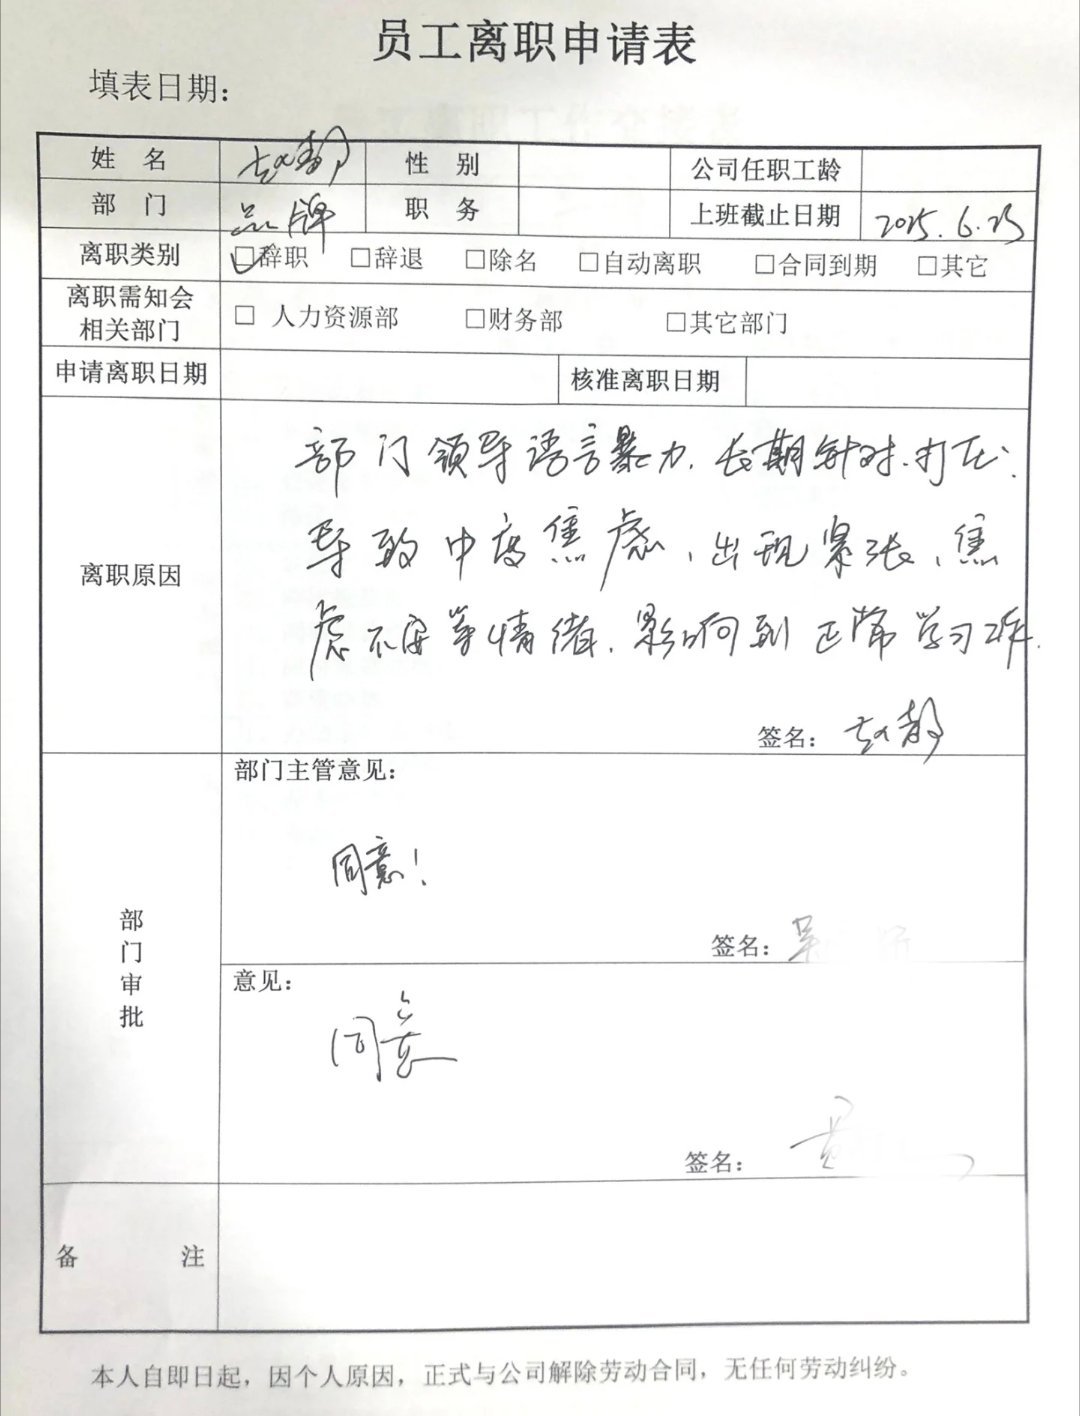 员工离职申请表
填表日期：
姓 名 赵静 性 别 公司任职工龄
部 门 品牌 职 务 上班截止日期 2025.6.25
离职类别 ☑辞职 □辞退 □除名 □自动离职 □合同到期 □其它
离职需知会
相关部门 □ 人力资源部 □财务部 □其它部门
申请离职日期 核准离职日期
离职原因
部门领导语言暴力，长期针对、打压，
导致中度焦虑，出现紧张、焦
虑不安等情绪，影响到正常学习工作.
签名： 赵静
部门审批
部门主管意见：
同意！
签名： 吴
意见：
同意
签名：
备 注
本人自即日起，因个人原因，正式与公司解除劳动合同，无任何劳动纠纷。